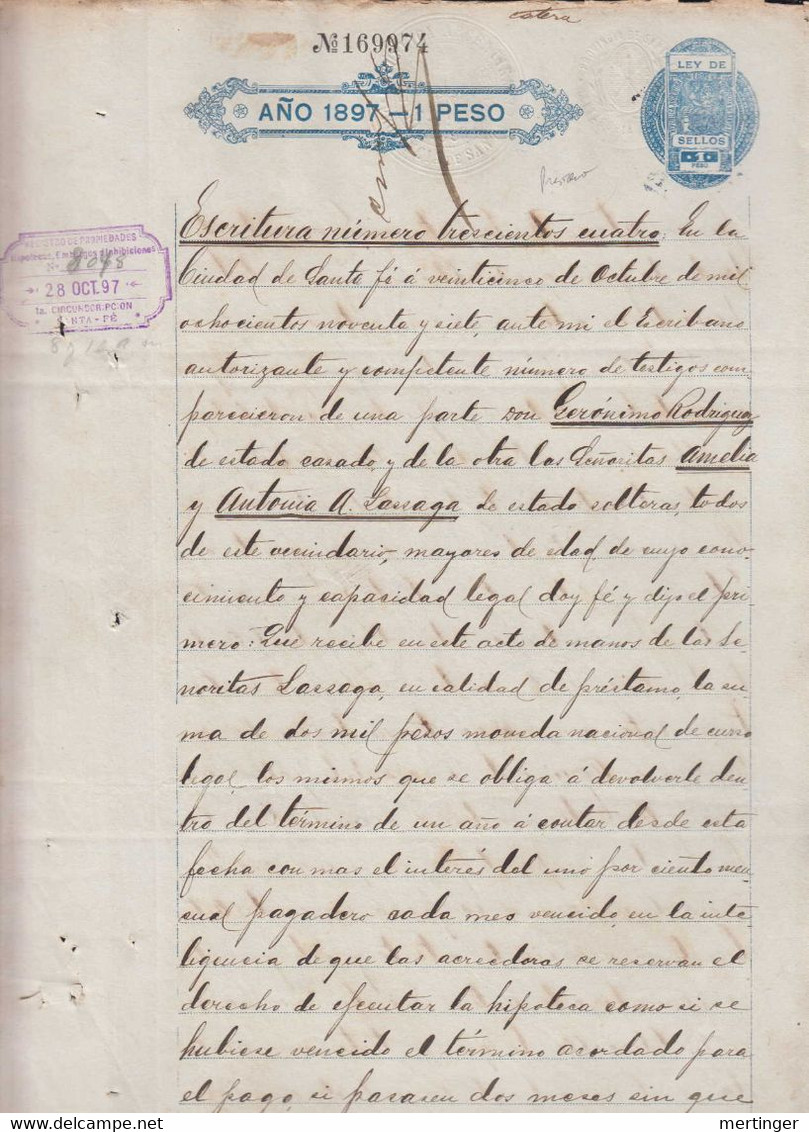 estera
№169974
AÑO 1897 — 1 PESO
LEY DE
SELLOS
1
PESO
Prestamo
REGISTRO DE PROPIEDADES
Hipotecas, Embargos é Inhibiciones
Nº 8048
28 OCT. 97
1a. CIRCUNSCRIPCION
SANTA-FÉ
Escritura número trescientos cuatro: En la
Ciudad de Santa fé á veinticinco de Octubre de mil
ochocientos noventa y siete, ante mi el Escribano
autorizante y competente número de testigos com
parecieron de una parte Don Gerónimo Rodriguez
de estado casado, y de la otra las Señoritas Amelia
y Antonia A. Lassaga de estado solteras, todos
de este vecindario, mayores de edad, de cuyo cono-
cimiento y capasidad legal doy fé y dijo el pri-
mero: Que recibe en este acto de manos de las Se-
ñoritas Lassaga, en calidad de préstamo, la su-
ma de dos mil pesos moneda nacional de curso
legal, los mismos que se obliga á devolverle den-
tro del término de un año á contar desde esta
fecha con mas el interés del uno por ciento men-
sual pagadero cada mes vencido, en la inte-
ligencia de que las acreedoras se reservan el
derecho de ejecutar la hipoteca como si se
hubiese vencido el término acordado para
el pago, si pasasen dos meses sin que
mertinger